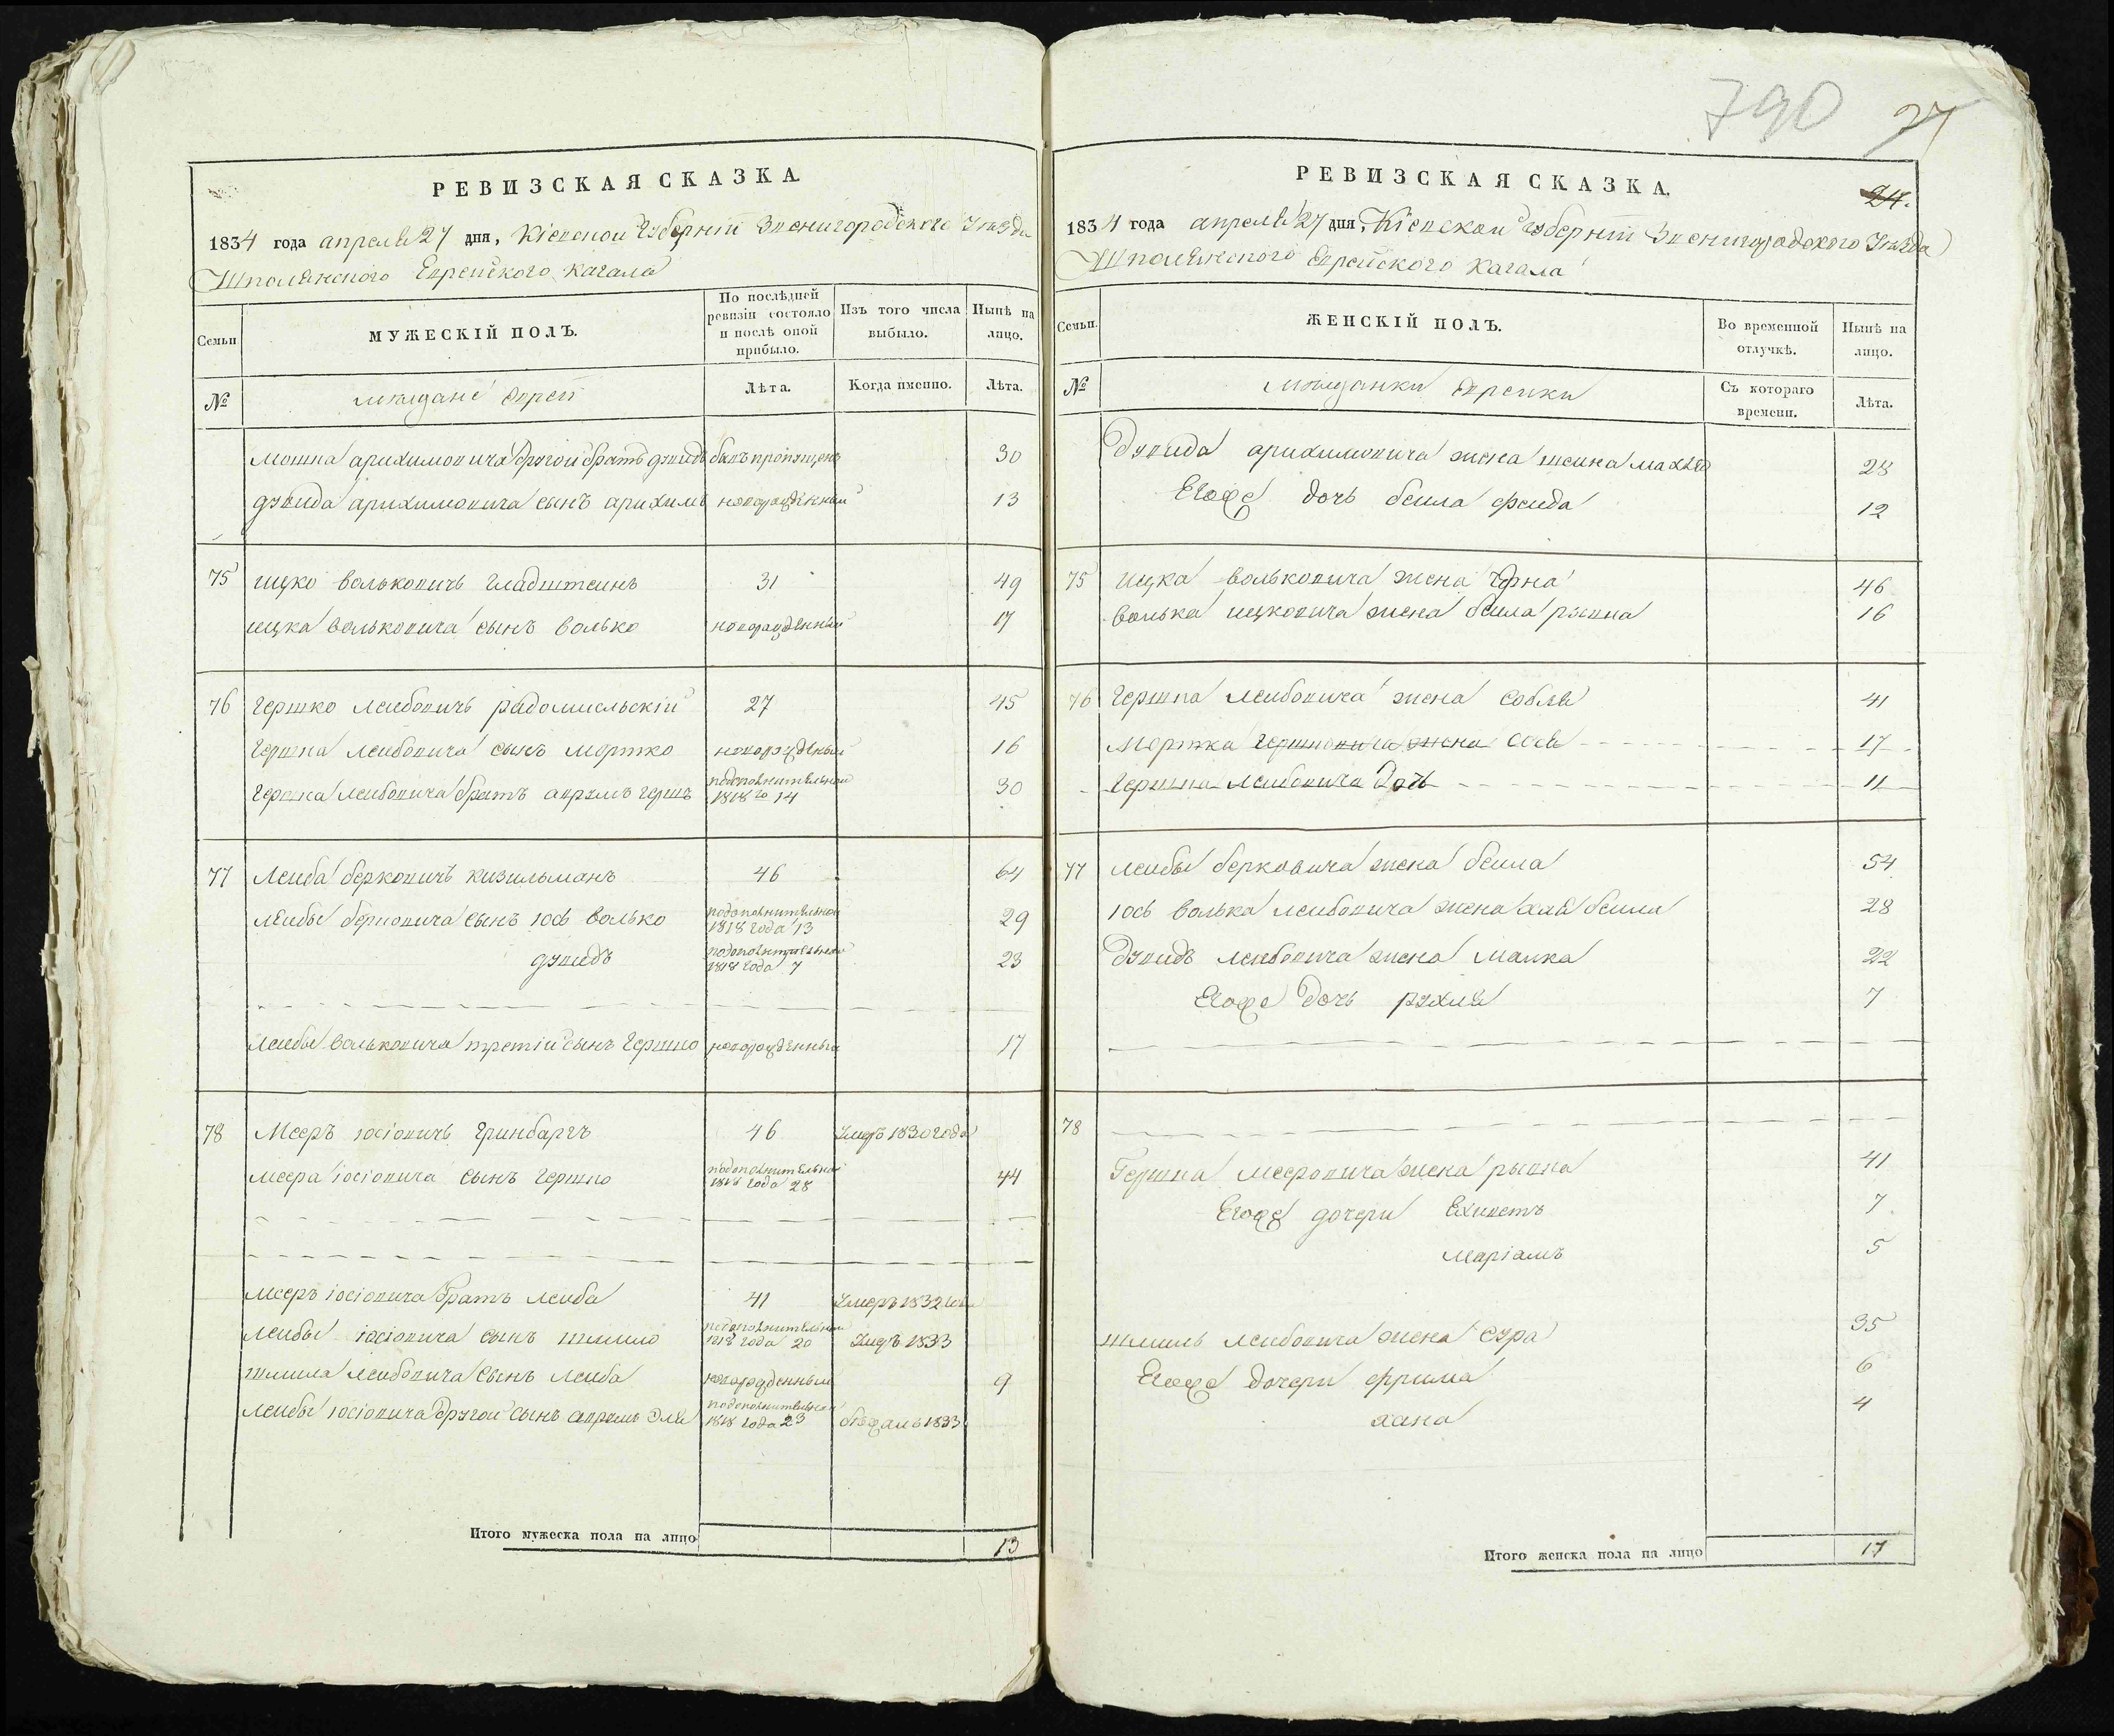 РЕВИЗСКАЯ СКАЗКА
1834 года апреля 27 дня, Кіевской Губерніи Звенигородского Уезда
Шполянского Еврейского кагала
Семьи
МУЖЕСКІЙ ПОЛЪ.
По послѣдней ревизіи состояло и послѣ оной прибыло.
Изъ того числа выбыло.
Нынѣ на лицо.
№
мещане евреи
Лѣта.
Когда именно.
Лѣта.
Мошка другой братъ былъ пропущенъ 30
сынъ новорожденный 13
75 ицко вольковичъ гладштеинъ 31 49
ицка вольковича сынъ волько новорожденный 17
76 Гершко леибовичъ радомисльскій 27 45
Гершка леибовича сынъ мортко новорожденый 16
Гершка леибовича братъ аврумъ гершъ подополнительнои 1818 го 14 30
77 Леиба берковичъ кизильманъ 46 64
леибы берковича сынъ іось волько подополнительнои 1818 года 13 29
дувидъ подополнительнои 1818 года 7 23
леибы вольковича третіи сынъ Гершко новорожденный 17
78 Мееръ іосіовичъ Гринбаргъ 46 Умеръ 1830 года
меера іосіовича сынъ гершко подополнительнои 1818 года 28 44
мееръ іосіовича братъ леиба 41 Умеръ 1832 года
леибы іосіовича сынъ шмилю подополнительнои 1818 года 20 Умеръ 1833
шмиля леибовича сынъ леиба новорожденный 9
леибы іосіовича другои сынъ аврумъ эля подополнительнои 1818 года 23 бежалъ 1833
Итого мужеска пола на лицо 13
790 27
РЕВИЗСКАЯ СКАЗКА.
24.
1834 года апреля 27 дня, Кіевской Губерніи Звенигородского Уезда
Шполянского Еврейского кагала
Семьи.
ЖЕНСКІЙ ПОЛЪ.
Во временной отлучкѣ.
Нынѣ на лицо.
№
мещанки евреики
Съ котораго времени.
Лѣта.
Дувида жена 28
Егоже дочь беила феида 12
75 ицка вольковича жена Чарна 46
волька ицковича жена беила рывка 16
76 Гершка леибовича жена собля 41
Мортка гершковича жена сося 17
Гершка леибовича дочь 11
77 леибы берковича жена беила 54
іось волька леибовича жена хая беила 28
Дувидъ леибовича жена малка 22
Егоже дочь рухля 7
78
Гершка мееровича жена рывка 41
Егоже дочери 7
маріамъ 5
шмиль леибовича жена сура 35
Егоже дочери фрима 6
хана 4
Итого женска пола на лицо 17